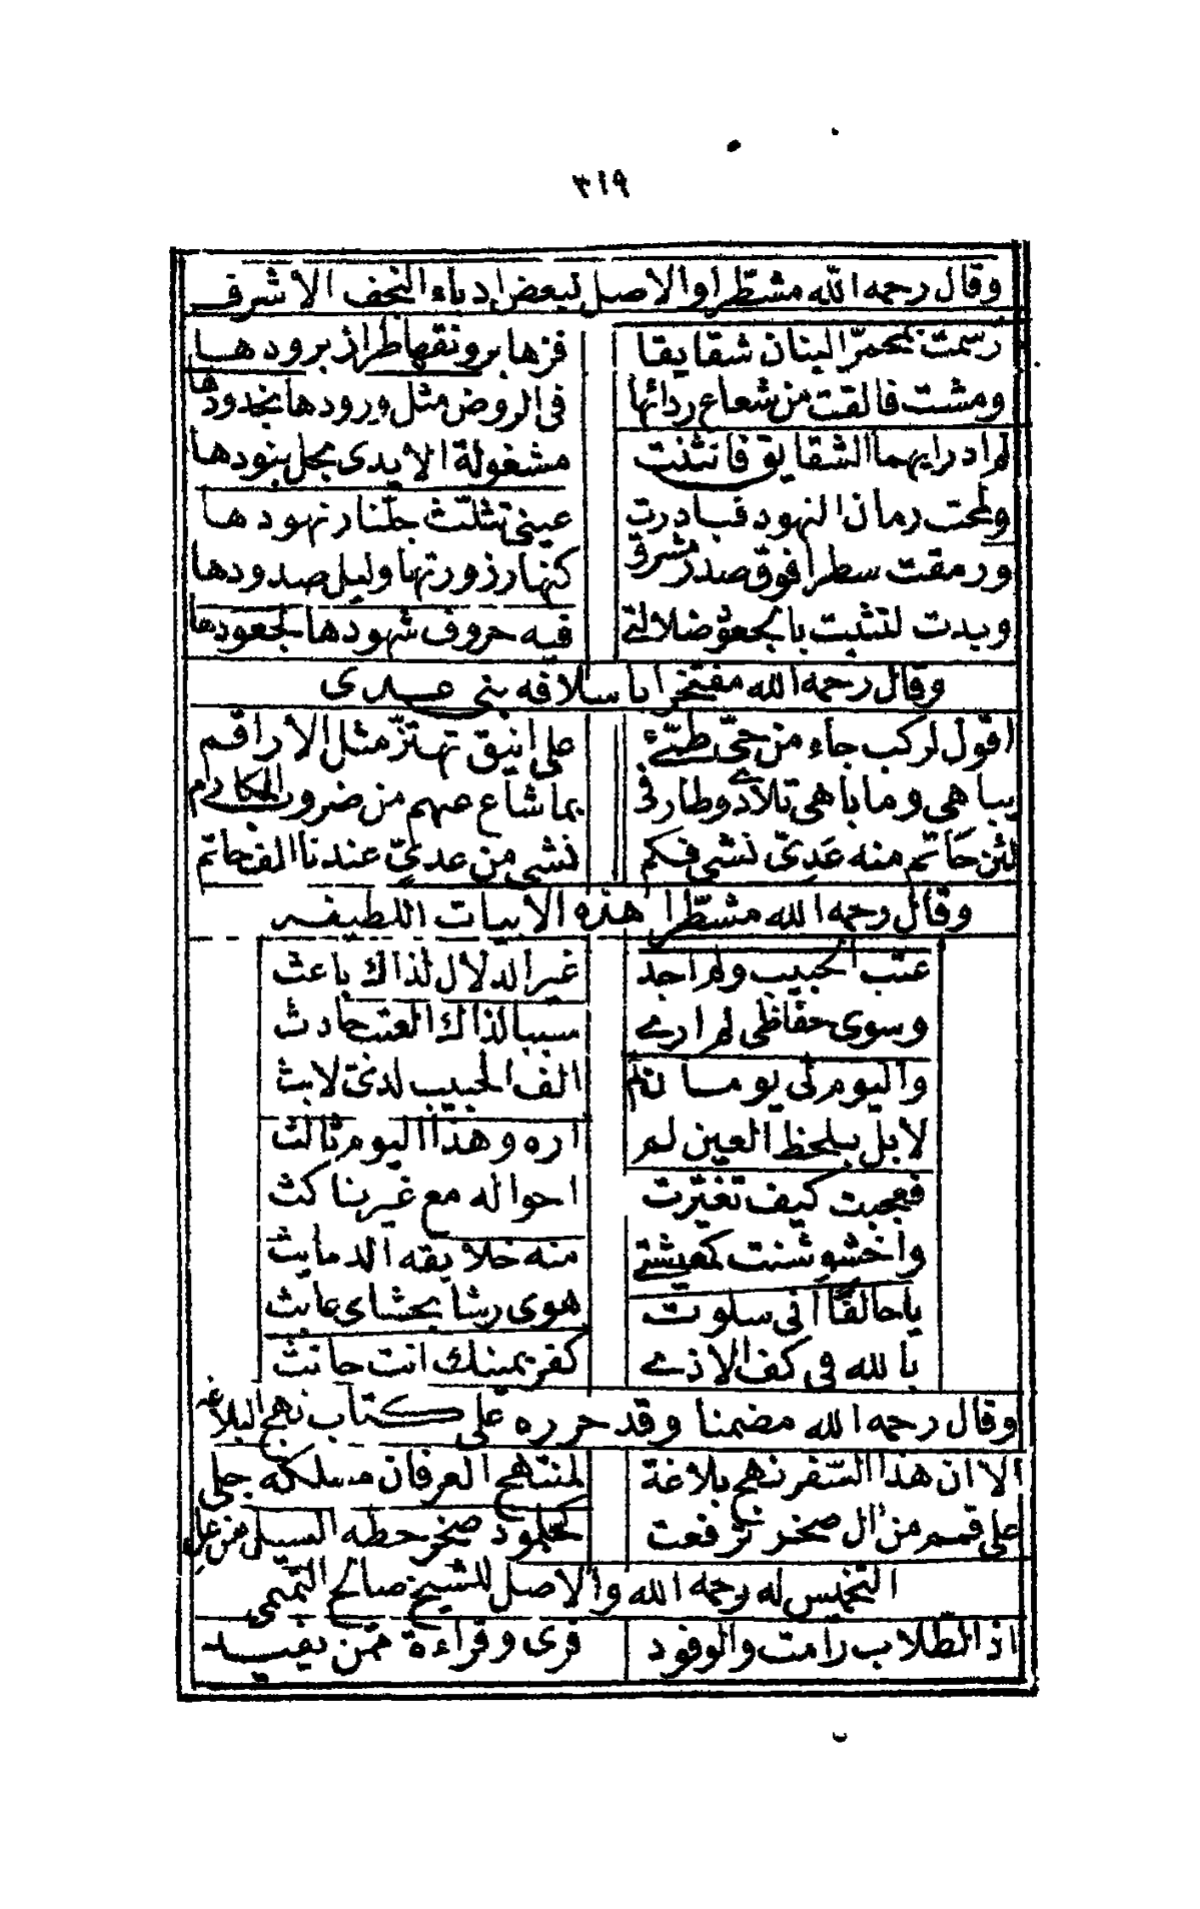 ٣١٩
وقال رحمه الله مشطّرا والاصل لبعض ادباء النجف الاشرف
رسمت بمحمرّ البنان شقايقا فزها برونقها طراز برودها
ومشت فالقت من شعاع ردائها في الروض مثل ورودها بخدودها
لم ادر ايهما الشقايق فانثنت مشغولة الايدى بحل بنودها
ولمحت رمان النهود فبادرت عينى تثلّث جلّنار نهودها
ورمقت سطرا فوق صدر مشرق كنهار زورتها وليل صدودها
وبدت لتثبت بالجعود ضلالتى فيه حروف شهودها لجعودها
وقال رحمه الله مفتخرا باسلافه بنى عدى
اقول لركب جاء من حىّ طىّء على انيق تهتزّ مثل الاراقم
يباهى وما باهى تلادى وطارفى بما شاع عنهم من ضروب المكارم
لئن حاتم منه عَدِىّ نشى فكم نشى من عدىّ عندنا الف حاتم
وقال رحمه الله مشطّرا هذه الابيات اللطيفه
عتب الحبيب ولم اجد غير الدلال لذاك باعث
وسوى حفاظى لم ارى سببا لذاك العتب حادث
واليوم لى يومان لم الف الحبيب لدىّ لابث
لا بل بلحظ العين لم اره وهذا اليوم ثالث
فعجبت كيف تغيّرت احواله مع غير ناكث
واخشوشنت كمعيشتى منه خلايقه الدمايث
يا حالفًا انى سلوت هوى رشا بحشاى عابث
بالله فى كف الاذى كفر يمينك انت حانث
وقال رحمه الله مضمنا وقد حرره على كتاب نهج البلاغه
الا ان هذا السّفر نهج بلاغة لمنتهج العرفان مسلكه جلى
على قمم من آل صخر ترفعت كجلمود صخر حطه السيل من علِ
التخميس له رحمه الله والاصل للشيخ صالح التميمى
اذا الطّلاب رامت والوفود قرى وقراءة ممّن يفيد